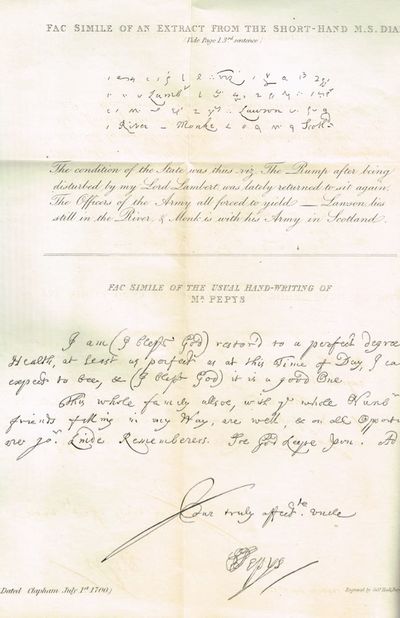 FAC SIMILE OF AN EXTRACT FROM THE SHORT-HAND M.S. DIA
(Vide Page 1. 3rd sentence)
viz
Lambt
Lawson
River Monke Scotld
The condition of the State was thus. viz. The Rump after being
disturbed by my Lord Lambert was lately returned to sit again.
The Officers of the Army all forced to yield — Lawson lies
still in the River & Monk is with his Army in Scotland.
FAC SIMILE OF THE USUAL HAND-WRITING OF
Mr. PEPYS
I am (I bless God) restor'd to a perfect degree
Health, at least as perfect as at this Time of Day, I ca
expect to bee, & (I bless God) it is a good One.
This whole family allsoe, with ye whole Numbr
friends falling in my Way, are well, & on all Opport
are yor. Kinde Rememberers. Soe God keepe you. Ad
Your truly affectte. Uncle
SPepys
Dated Clapham July 1st 1700)
Engraved by